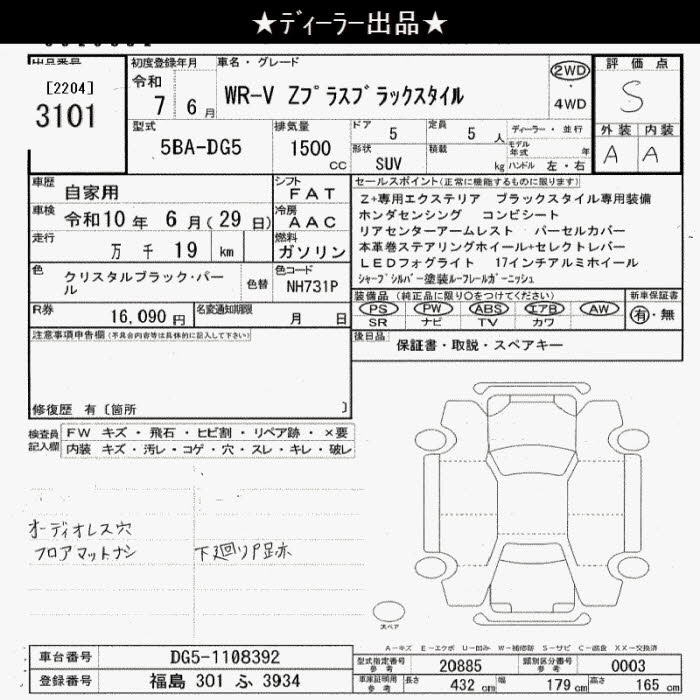 ★ディーラー出品★
出品番号 初度登録年月 車名・グレード 評価点
[2204] 3101 令和 7 6月 WR-V Zプラスブラックスタイル 2WD・4WD S
型式 排気量 ドア 5 定員 5人 ディーラー・並行 外装 内装
5BA-DG5 1500cc 形状 SUV 積載 kg モデル年式 年 ハンドル 左・右 A A
車歴 自家用 シフト FAT セールスポイント(正常に機能するものに限ります)
車検 令和10年 6月(29日) 冷房 AAC
走行 万千19 km 燃料 ガソリン
Z+専用エクステリア ブラックスタイル専用装備
ホンダセンシング コンビシート
リアセンターアームレスト パーセルカバー
本革巻ステアリングホイール+セレクトレバー
LEDフォグライト 17インチアルミホイール
シャープシルバー塗装ルーフレールガーニッシュ
色 クリスタルブラック・パール 色替 色コード NH731P
装備品(純正品に限り○をつけてください) 新車保証書
PS PW ABS エアB AW 有・無
SR ナビ TV カワ
R券 16,090円 名変通知期限 月 日
後日品 保証書・取説・スペアキー
注意事項申告欄(不具合内容等は具体的に記入して下さい)
修復歴 有〔箇所 〕
検査員記入欄 FW キズ・飛石・ヒビ割・リペア跡・×要
内装 キズ・汚レ・コゲ・穴・スレ・キレ・破レ
オーディオレス穴
フロアマットナシ 下廻りP跡
スペア
A-キズ E-エクボ U-凹み W-補修跡 S-サビ C-腐食 XX-交換済
車台番号 DG5-1108392 型式指定番号 参考 20885 類別区分番号 参考 0003
登録番号 福島 301 ふ 3934 車庫証明用 参考 長さ 432cm 幅 179cm 高さ 165cm